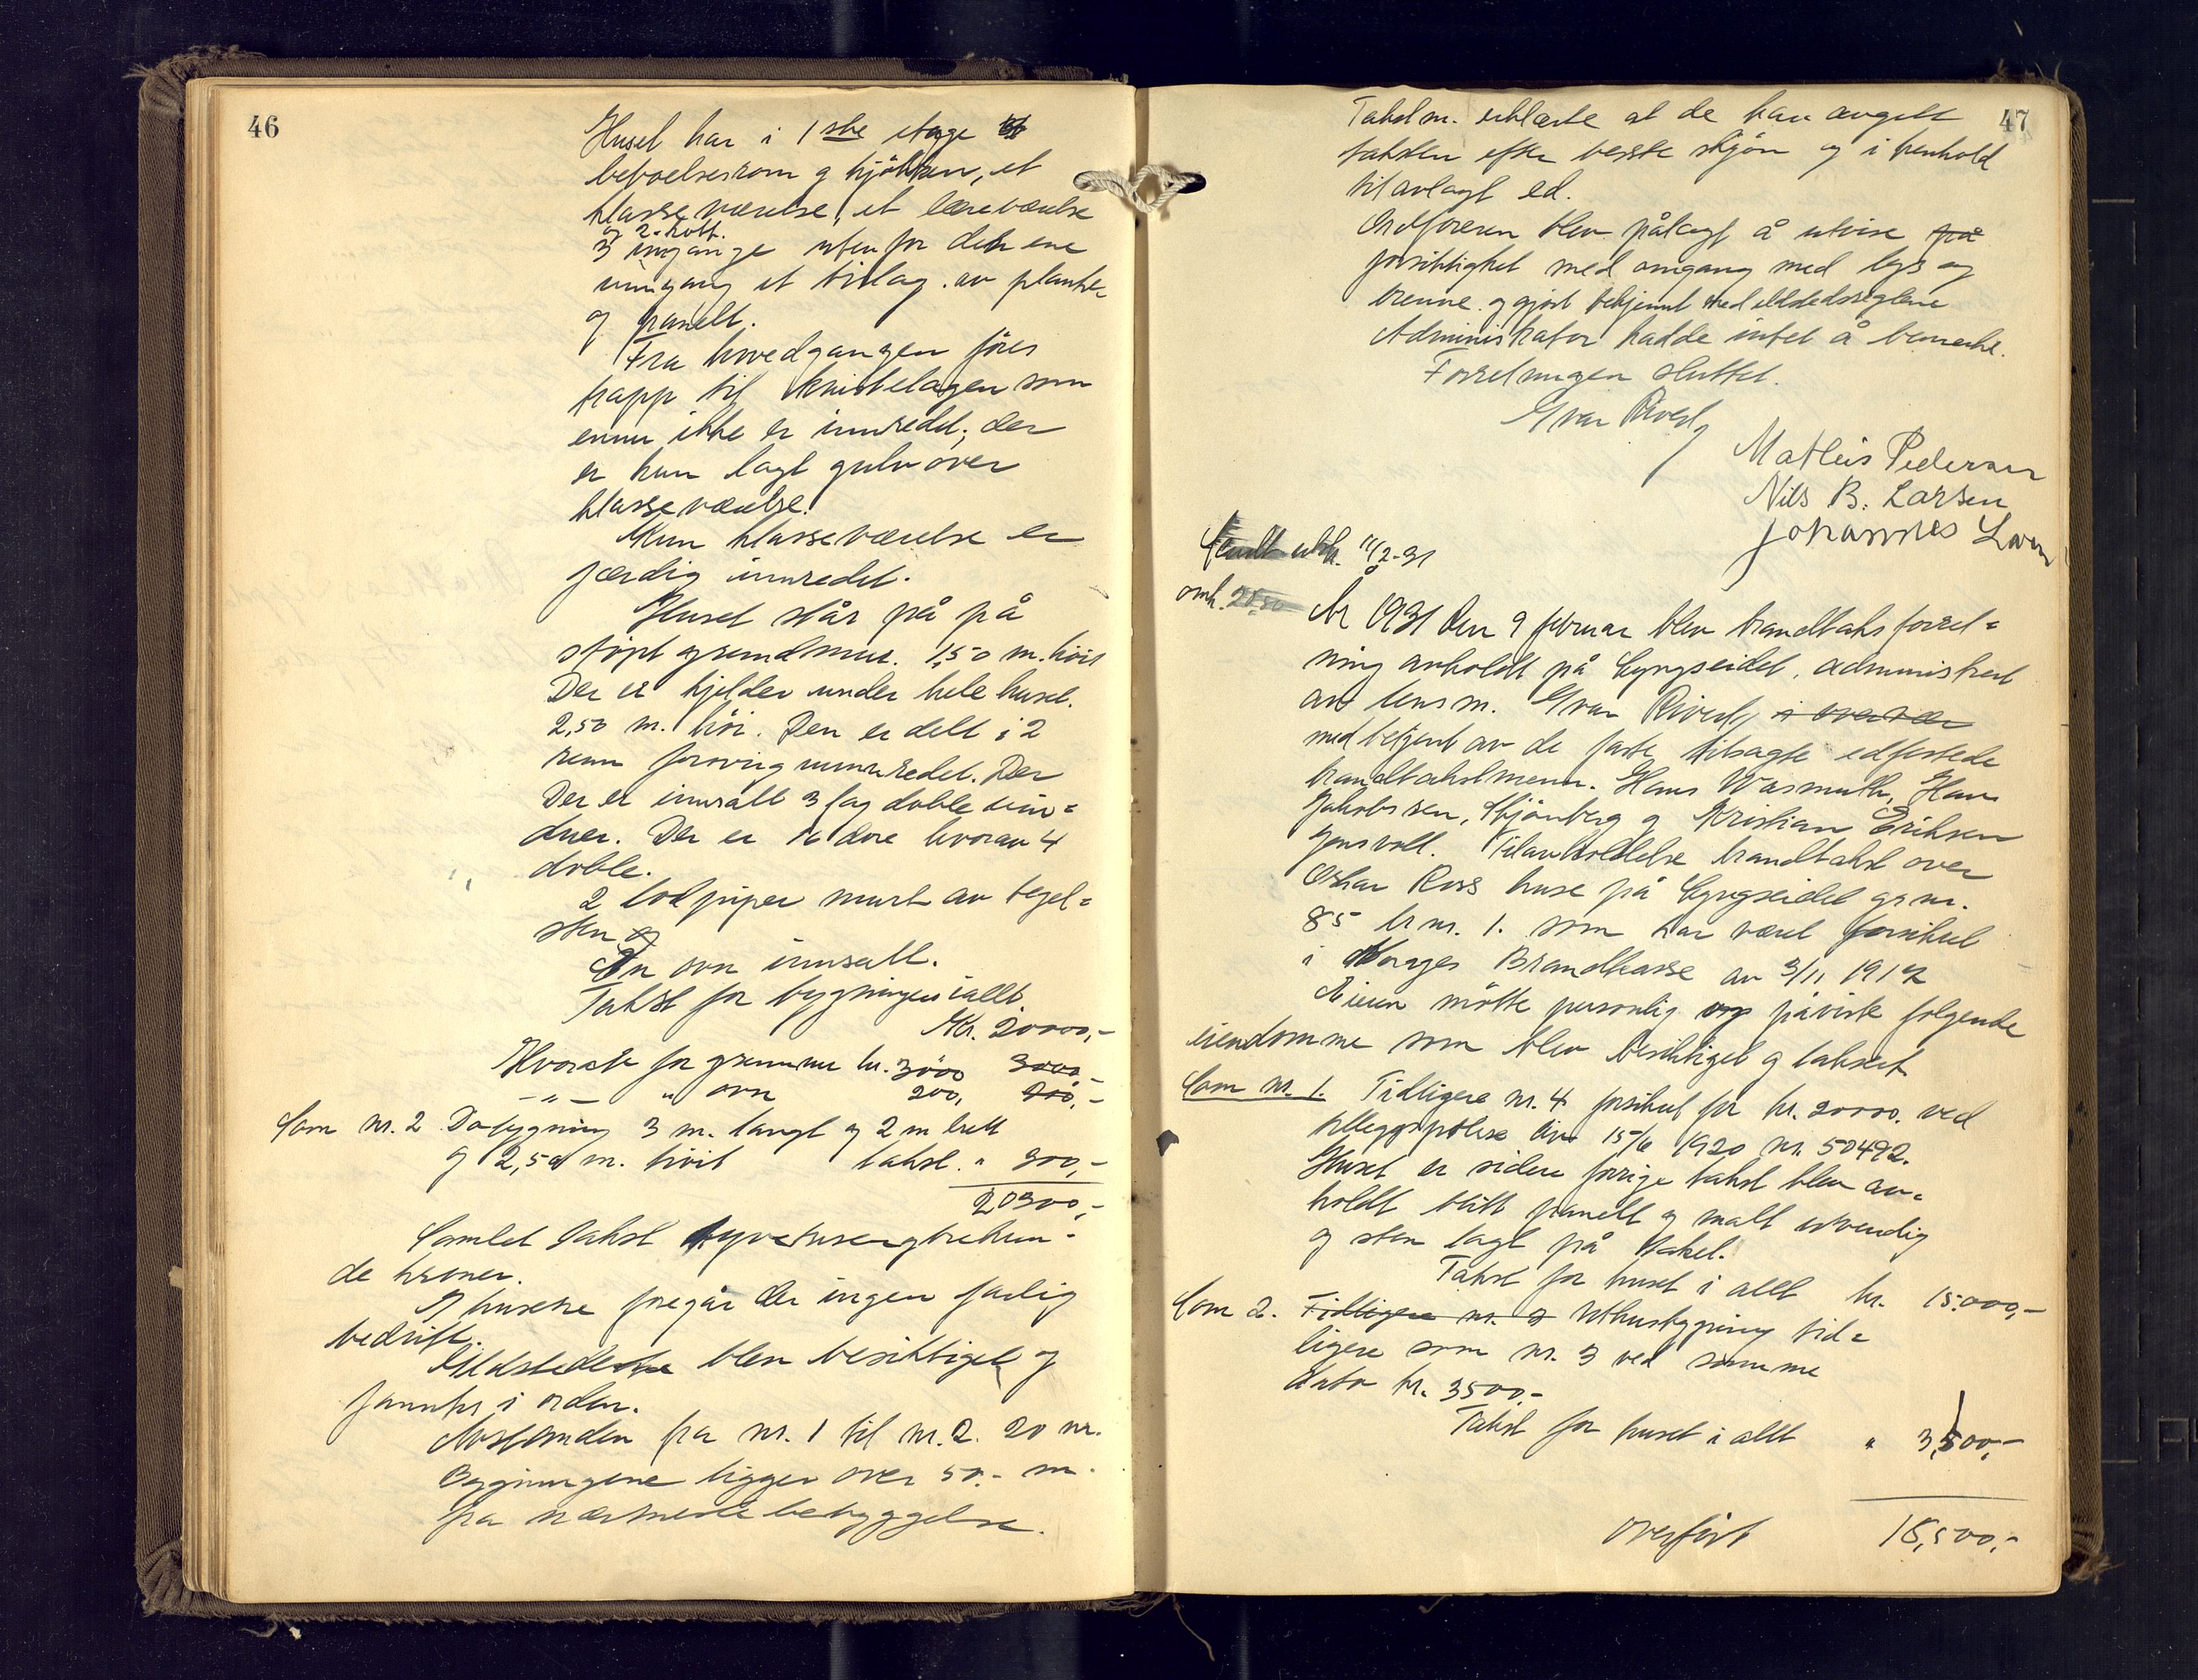 46
Huset har i 1ste etage
beboelsesrom og kjökken, et
klasseværelse, et læreværelse
og 2. kott.
3 innganger utenfor den ene
inngang et bislag av planker
og panelt.
Fra hovedgangen föres
trapp til knistelagen som
ennu ikke er innredet; der
er kun lagt gulv over
klasseværelse.
Kun klasseværelse er
færdig innredet.
Huset står på på
støpt grundmur. 1,50 m. höit
Der er kjelder under hele huset.
2,50 m. höi. Den er delt i 2
rum forøvrig uinnredet. Der
Der er innsatt 3 fag doble vin=
duer. Der er 12 döre hvorav 4
doble.
2 lodpiper murt av tegel=
sten og
En ovn innsatt.
Takst for bygningen i allt
Kr. 20000,-
Hvorav for grunnmur kr. 3000 3000,-
-"- " ovn 200, 200,-
Som nr. 2 Dobygning 3 m. langt og 2 m brett
og 2,50 m. höit takst. " 300,-
20300,-
Samlet takst tyvetusengtrehun-
de kroner.
I husene foregår der ingen farlig
bedrift.
Ildstedene blev besiktiget og
fanntes i orden.
Avstanden fra nr. 1 til nr. 2. 20 m.
Bygningene ligger over 50.- m.
fra nærmeste bebyggelse.
47
Takstm. erklærte at de har avgitt
taksten efter beste skjön og i henhold
til avlagt ed.
Ordföreren blev pålagt å utvise på
forsiktighet med omgang med lys og
brenne og gjort bekjennt med ildstedsreglene
Administrator hadde intet å bemerke.
Forretningen sluttet.
Ivar Riverts
Matheis Pedersen
Nils B. Larsen
Johannes
Sendt utskr. 11/2-31
omk. 20,50
År 1931 den 9 februar blev branntakstforret=
ning avholdt på Lyngseidet, administrert
av lensm. Ivar Rivertz i overvær
med betjent av de faste tilsagte edfestede
branntakstmenn. Hans Wasmuth, Hans
Jakobsen, Skjönberg og Kristian Eriksen
Jensvoll. Til avholdelse branntakst over
Oskar Ross huse på Lyngseidet gr.nr.
85 br.nr. 1. som har været forsikret
i Norges Brandkasse av 3/11 1917
Eieren mötte personlig og påviste følgende
eiendomme som blev besiktiget og takseret
Som nr. 1. Tidligere nr. 4 forsikret for kr. 20000. ved
tilleggspolise av 15/6 1920 nr. 50492.
Huset er siden forrige takst blev av=
holdt blitt panelt og malt utvendig
og sten lagt på taket.
Takst for huset i allt kr. 15.000,-
Som 2. Tidligere nr. 2 Uthusbygning tid=
ligere som nr. 3 ved samme
dato kr. 3500.-
Takst for huset i allt " 3,500,-
overfört 18,500,-